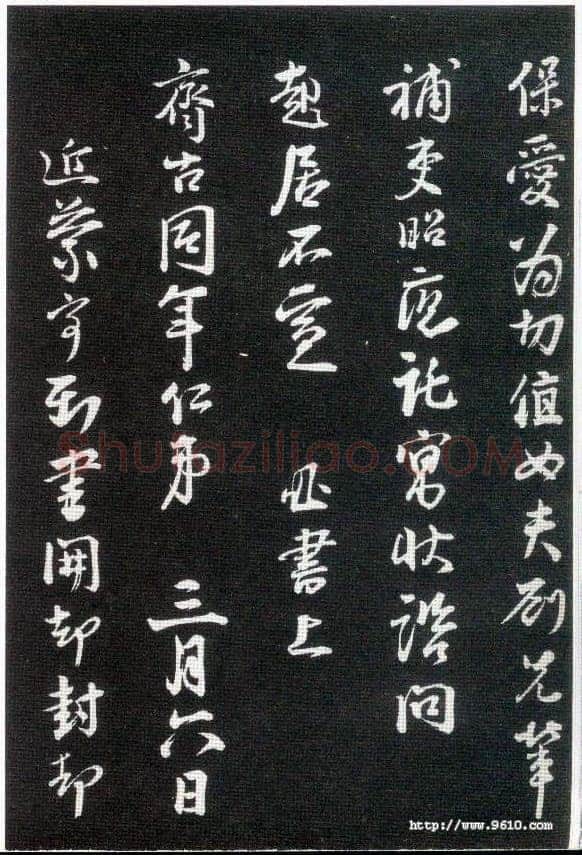 保愛為切值女夫劉兄輦
補吏昭應託寓狀諮問
起居不宣 書上
齊古同年仁弟 三月六日
近蒙寄到書開却封却
Shufaziliao.COM
http://www.9610.com